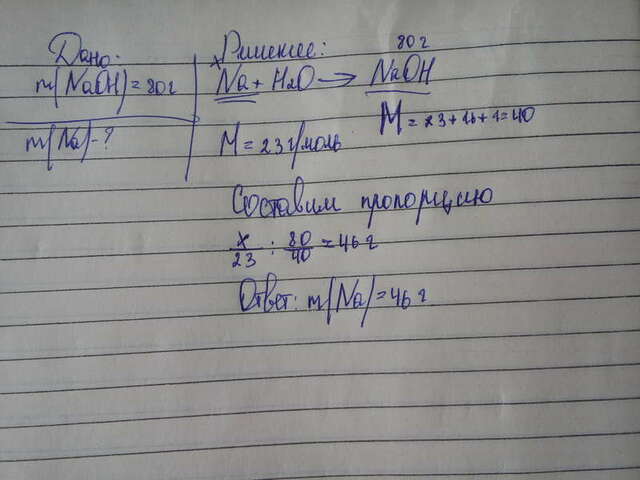 Дано:
m(NaOH) = 80 г
m(Na) - ?
Решение:
x 80 г
Na + H2O → NaOH
M = 23 г/моль
M = 23 + 16 + 1 = 40
Составим пропорцию
x/23 : 80/40 = 46 г
Ответ: m(Na) = 46 г